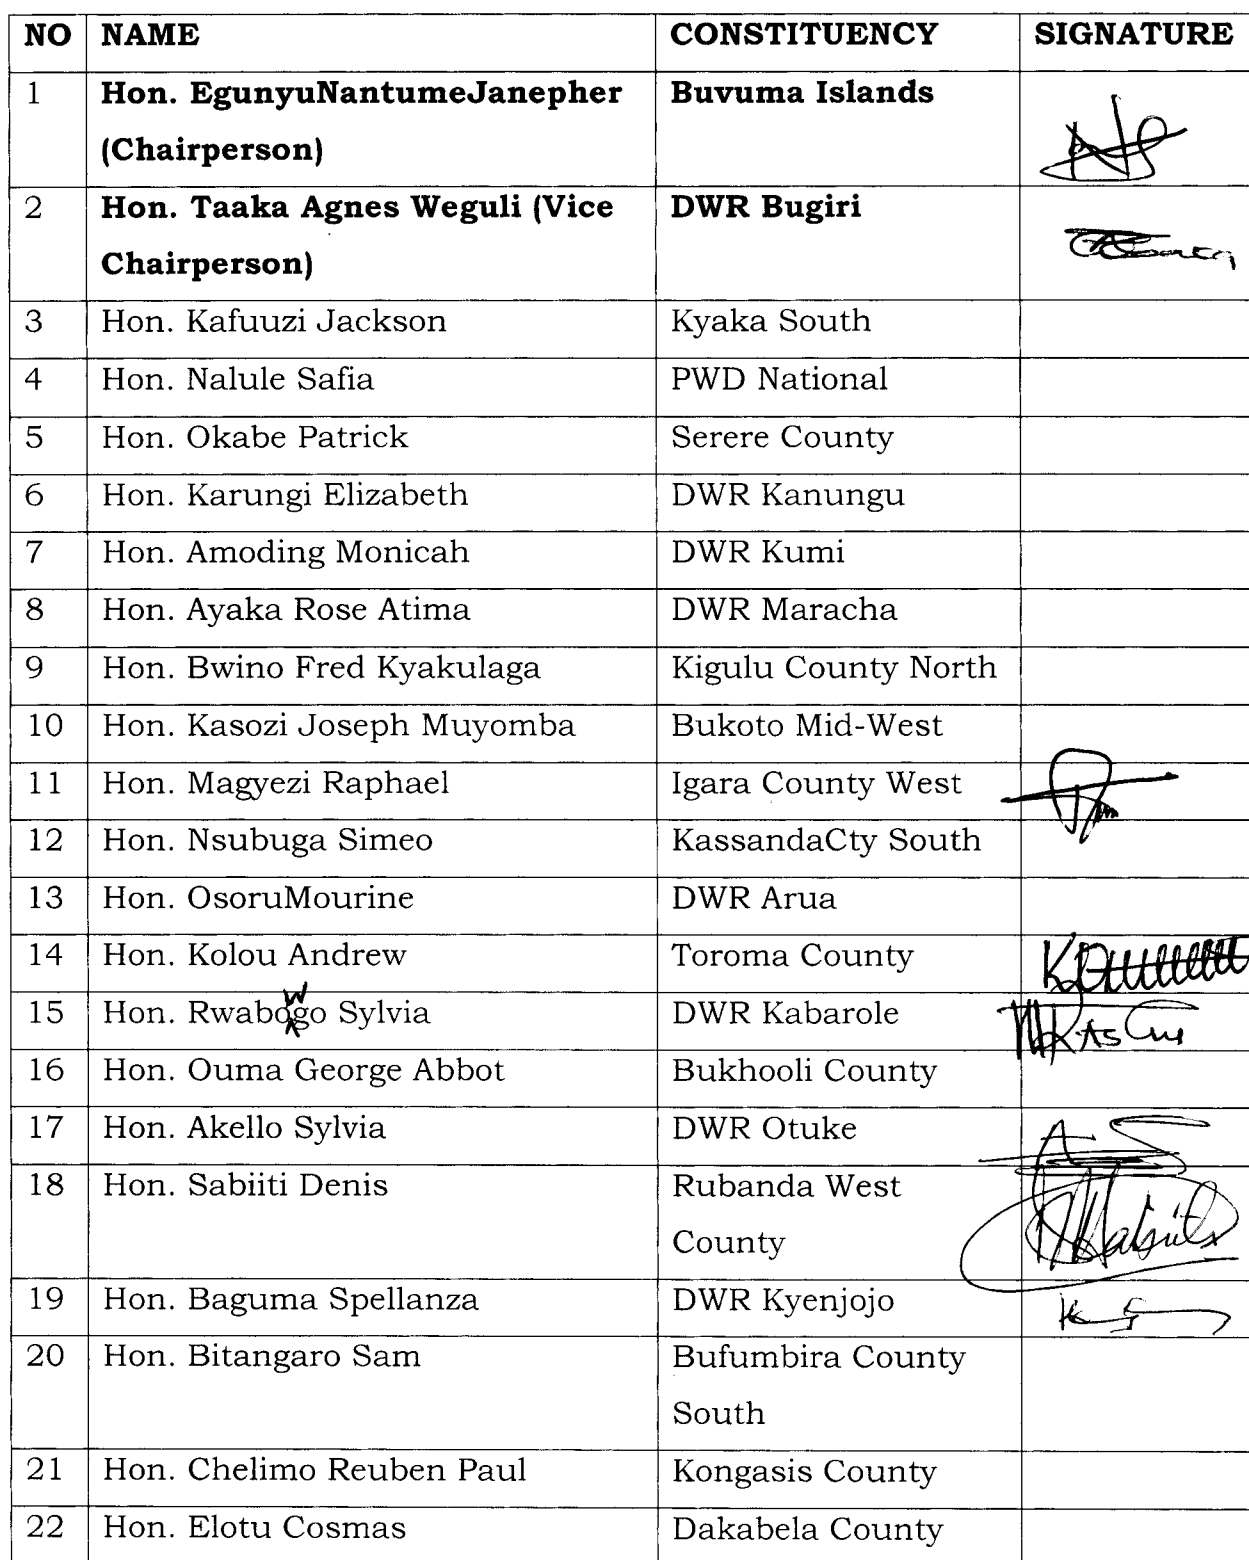 NO NAME CONSTITUENCY SIGNATURE
1 Hon. EgunyuNantumeJanepher Buvuma Islands
(Chairperson)
2 Hon. Taaka Agnes Weguli (Vice DWR Bugiri
Chairperson)
3 Hon. Kafuuzi Jackson Kyaka South
4 Hon. Nalule Safia PWD National
5 Hon. Okabe Patrick Serere County
6 Hon. Karungi Elizabeth DWR Kanungu
7 Hon. Amoding Monicah DWR Kumi
8 Hon. Ayaka Rose Atima DWR Maracha
9 Hon. Bwino Fred Kyakulaga Kigulu County North
10 Hon. Kasozi Joseph Muyomba Bukoto Mid-West
11 Hon. Magyezi Raphael Igara County West
12 Hon. Nsubuga Simeo KassandaCty South
13 Hon. OsoruMourine DWR Arua
14 Hon. Kolou Andrew Toroma County
w
15 Hon. Rwabogo Sylvia DWR Kabarole
16 Hon. Ouma George Abbot Bukhooli County
17 Hon. Akello Sylvia DWR Otuke
18 Hon. Sabiiti Denis Rubanda West
County
19 Hon. Baguma Spellanza DWR Kyenjojo
20 Hon. Bitangaro Sam Bufumbira County
South
21 Hon. Chelimo Reuben Paul Kongasis County
22 Hon. Elotu Cosmas Dakabela County